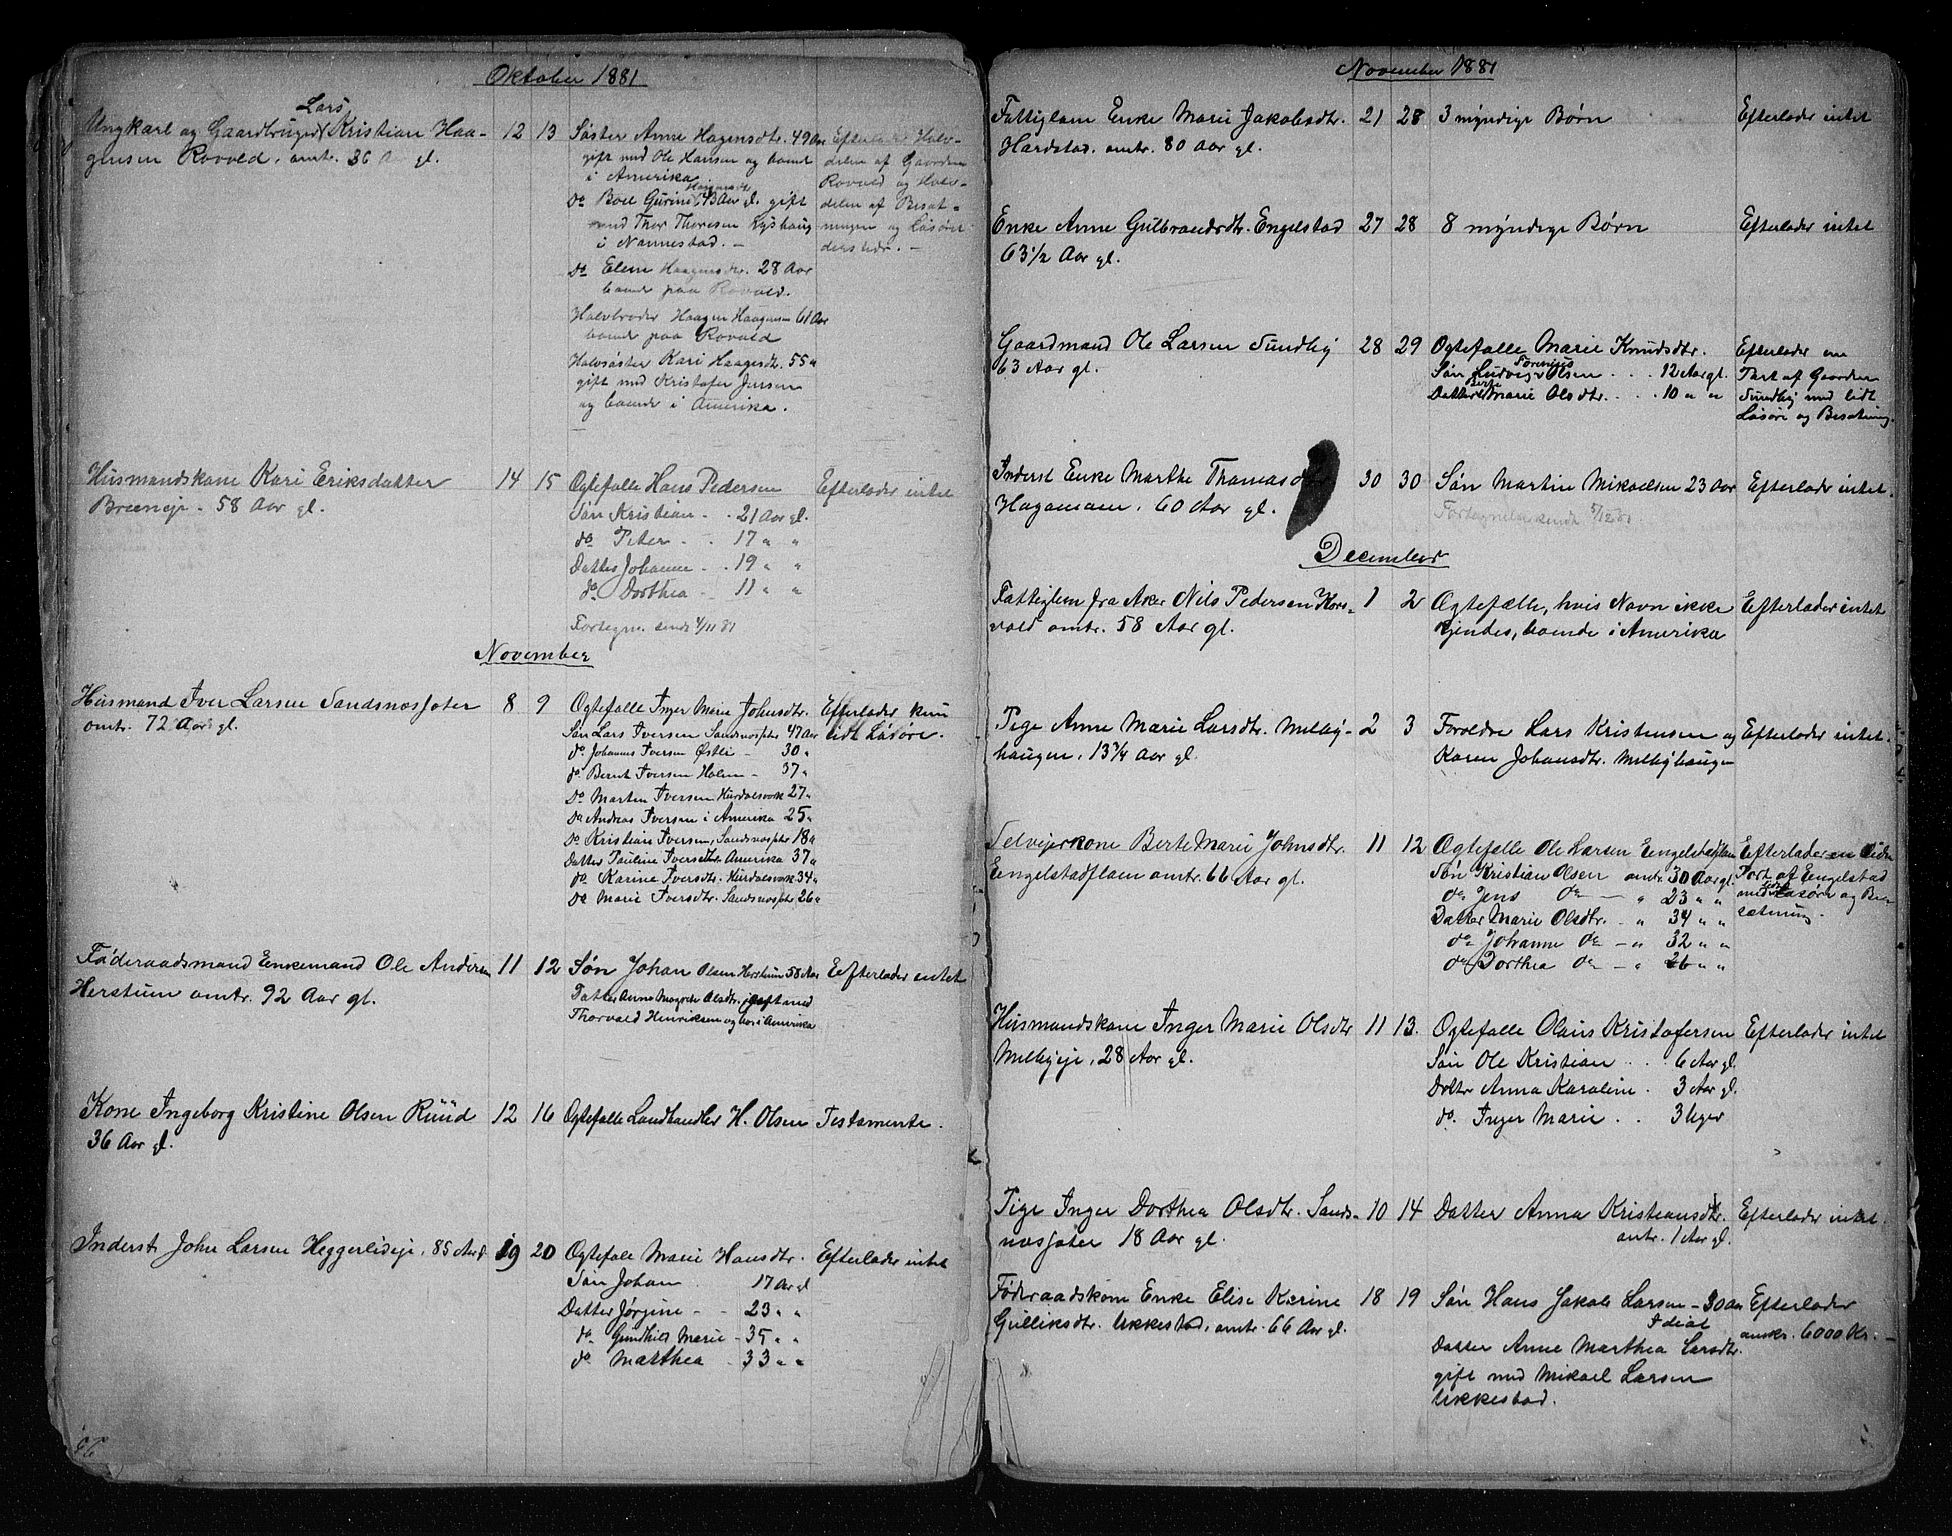 Oktober 1881
Lars
Ungkarl og Gaardbruger Kristian Haa- 12 13 Søster Anne Hagensdtr. 49 Aar Efterlader Halv-
gensen Rovold. omtr. 36 A gl. gift med Ole Hansen og boende delen af Gaarden
i Amerika Rovold og Halv-
Haagensdtr
do Boel Gurine 43 Aar gl. gift delen af Besæt-
med Thor Thoresen Lyshaug ningen og Løsøre
i Nannestad. -
do Eline Haagensdtr. 28 Aar
boende paa Rovold.
Halvbroder Haagen Haagensen 61 Aar
boende paa Rovold
Halvsøster Kari Haagesdtr. 55 "
gift med Kristofer Jensen
og boende i Amerika.
Husmandskone Kari Eriksdatter 14 15 Ægtefælle Hans Pedersen Efterlader intet
58 Aar gl. Søn Kristian - . 21 Aar gl.
do Peter - . 17 " "
Datter Johanne - . 19 " "
do Dorthea - 11 " "
Fortegn. sendt 4/11 81
November
Husmand Iver Larsen Sandsnæssæter 8 9 Ægtefælle Inger Marie Johnsdtr. Efterlader kun
omtr. 72 Aar gl. Søn Lars Iversen Sandsnæssæter 47 Aar lidt Løsøre.
do Johannes Iversen Østli - 30 "
do Bernt Iversen Holm - 37 "
do Martin Iversen Hurdalsverk 27 "
do Andreas Iversen i Amerika 25 "
do Kristian Iversen, Sandsnæssæter 18 "
Datter Pauline Iversdtr. Amerika 37 "
do Karine Iversdtr. Hurdalsverk 34 "
do Marie Iversdtr. Sandsnæssæter 26 "
Føderaadsmand Enkemand Ole Andersen 11 12 Søn Johan Olsen Herstum 58 Aar Efterlader intet
Herstum omtr. 92 Aar gl. Datter Anne Olsdtr. gift med
Thorvald Henriksen og bor i Amerika
Kone Ingeborg Kristine Olsen Ruud 12 16 Ægtefælle Landhandler H. Olsen Testamente.
36 Aar gl.
Inderst John Larsen Heggerlieie, 85 Aar gl. 19 20 Ægtefælle Marie Hansdtr. Efterlader intet
Søn Johan 17 Aar gl
Datter Jørgine - - 23 " "
do Gunhild Marie - 35 " "
do Mathea - 33 " "
November 1881
Fattiglem Enke Marie Jakobsdtr. 21 28 3 myndige Børn Efterlader intet
Hærdstad. omtr. 80 Aar gl.
Enke Anne Gulbrandsdtr. Engelstad 27 28 8 myndige Børn Efterlader intet
63 1/2 Aar gl.
Gaardmand Ole Larsen Sundby 28 29 Ægtefælle Marie Knudsdtr. Efterlader en
63 Aar gl. Søn Ludvig Olsen . . . 12 Aar gl. Part af Gaarden
Berte
Datter Marie Olsdtr. . . . 10 " " Sundby med lidt
Løsøre og Besætning.
Inderst Enke Marthe Thomasdtr 30 30 Søn Martin Mikaelsen 23 Aar Efterlader intet.
Hagamoen. 60 Aar gl. Fortegnelse sendt 5/12 81
December
Fattiglem fra Aker Nils Pedersen Kors- 1 2 Ægtefælle, hvis Navn ikke Efterlader intet
vold omtr. 58 Aar gl. kjendes, boende i Amerika
Pige Anne Marie Larsdtr. Melby- 2 3 Forældre Lars Kristensen og Efterlader intet.
haugen. 13 3/4 Aar gl. Karen Johansdtr. Melbyhaugen
Selveierkone Berte Marie Johnsdtr. 11 12 Ægtefælle Ole Larsen Eengelstadflaen Efterlader en liden
Eengelstadflaen omtr. 66 Aar gl. Søn Kristian Olsen omtr. 30 Aar gl. Part af Eengelstad
do Jens do - " 23 " " med lidt Løsøre og Be-
Datter Marie Olsdtr. - " 34 " " sætning.
do Johanne do - " 32 " "
do Dorthea do - " 26 " "
Husmandskone Inger Marie Olsdtr 11 13. Ægtefælle Olaus Kristofersen Efterlader intet
Melbyeie, 28 Aar gl. Søn Ole Kristian . . 6 Aar gl.
Datter Anna Karoline . 3 Aar gl.
do. Inger Marie . . 3 Uger
Pige Inger Dorthea Olsdtr. Sands- 10 14 Datter Anna Kristiansdtr. Efterlader intet.
næssæter 18 Aar gl. omtr. 1 Aar gl.
Føderaadskone Enke Elise Karine 18 19 Søn Hans Jakob Larsen - 30 Aar Efterlader
Gulliksdtr. Ukkestad, omtr. 66 Aar gl. omkr. 6000 Kr. -
Datter Anne Marthea Larsdtr.
gift med Mikael Larsen
Ukkestad.